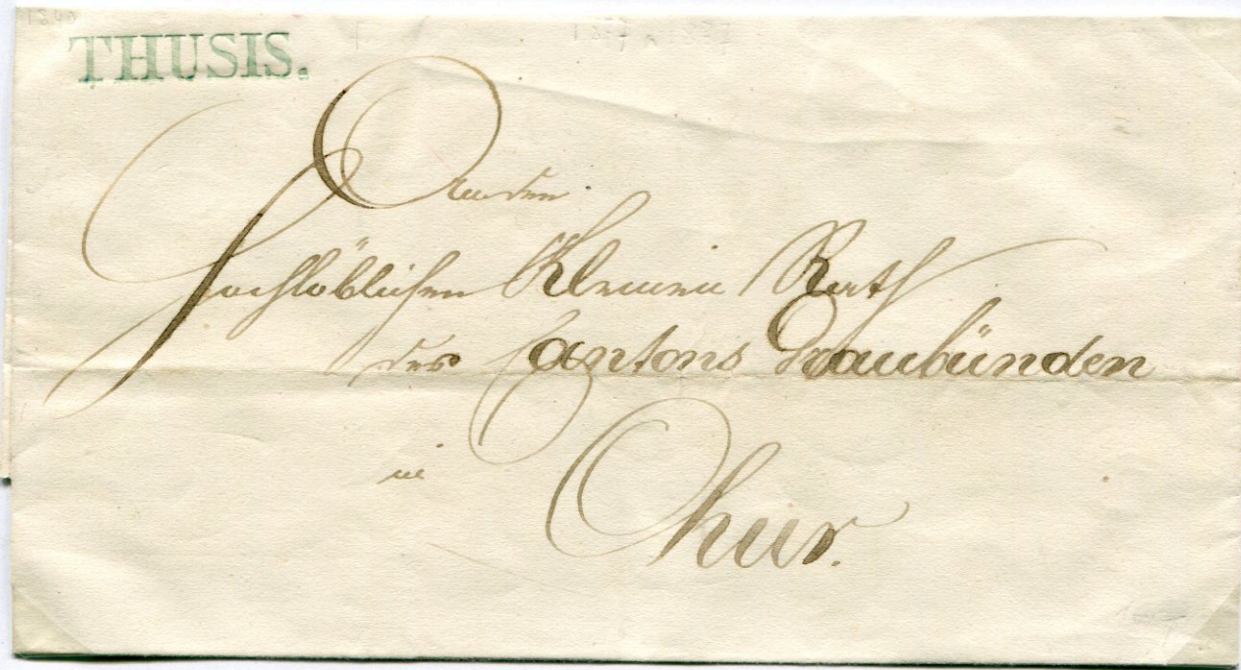 THUSIS.
An den
Hochlöblichen Kleinen Rath
des Cantons Graubünden
in
Chur.